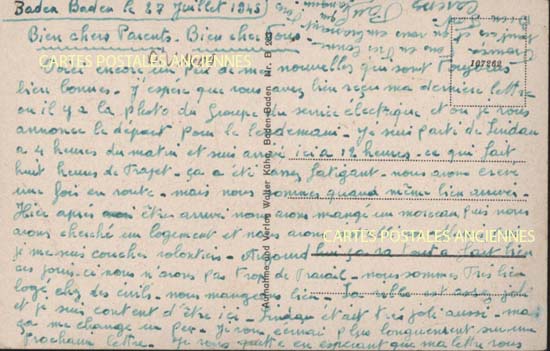 Baden Baden le 27 Juillet 1945
Bien chers Parents. Bien chers Tous.
Voici encore un peu de mes nouvelles qui sont toujours
bien bonnes. J'espère que vous avez bien reçu ma dernière lettre
où il y a la photo du Groupe du service électrique et où je vous
annonce le départ pour le lendemain. Je suis parti de Lindau
a 4 heures du matin et suis arrivé ici a 12 heures. ce qui fait
huit heures de Trajet. ça a été assez fatigant. nous avons crevé
une fois en route. mais nous sommes quand même bien arrivé.
Hier après être arrivé nous avons mangé un morceau puis nous
avons cherché un logement et
je me suis couché volontiers. Aujourd'hui ça va tout a fait bien
ces jours ci nous n'avons pas trop de Travail. nous sommes Très bien
logé chez des civils. nous mangeons bien. La ville est assez joli
et je suis content d'être ici. Lindau était très joli aussi. mais
ça me change un peu. Je vous écrirai plus longuement sur une
Prochaine lettre. Je vous quitte en espérant que ma lettre vous
107262
Aufnahme und Verlag Walter Kühn, Baden-Baden Nr. B 263
CARTES POSTALES ANCIENNES
CARTES POSTALES ANCIENNES